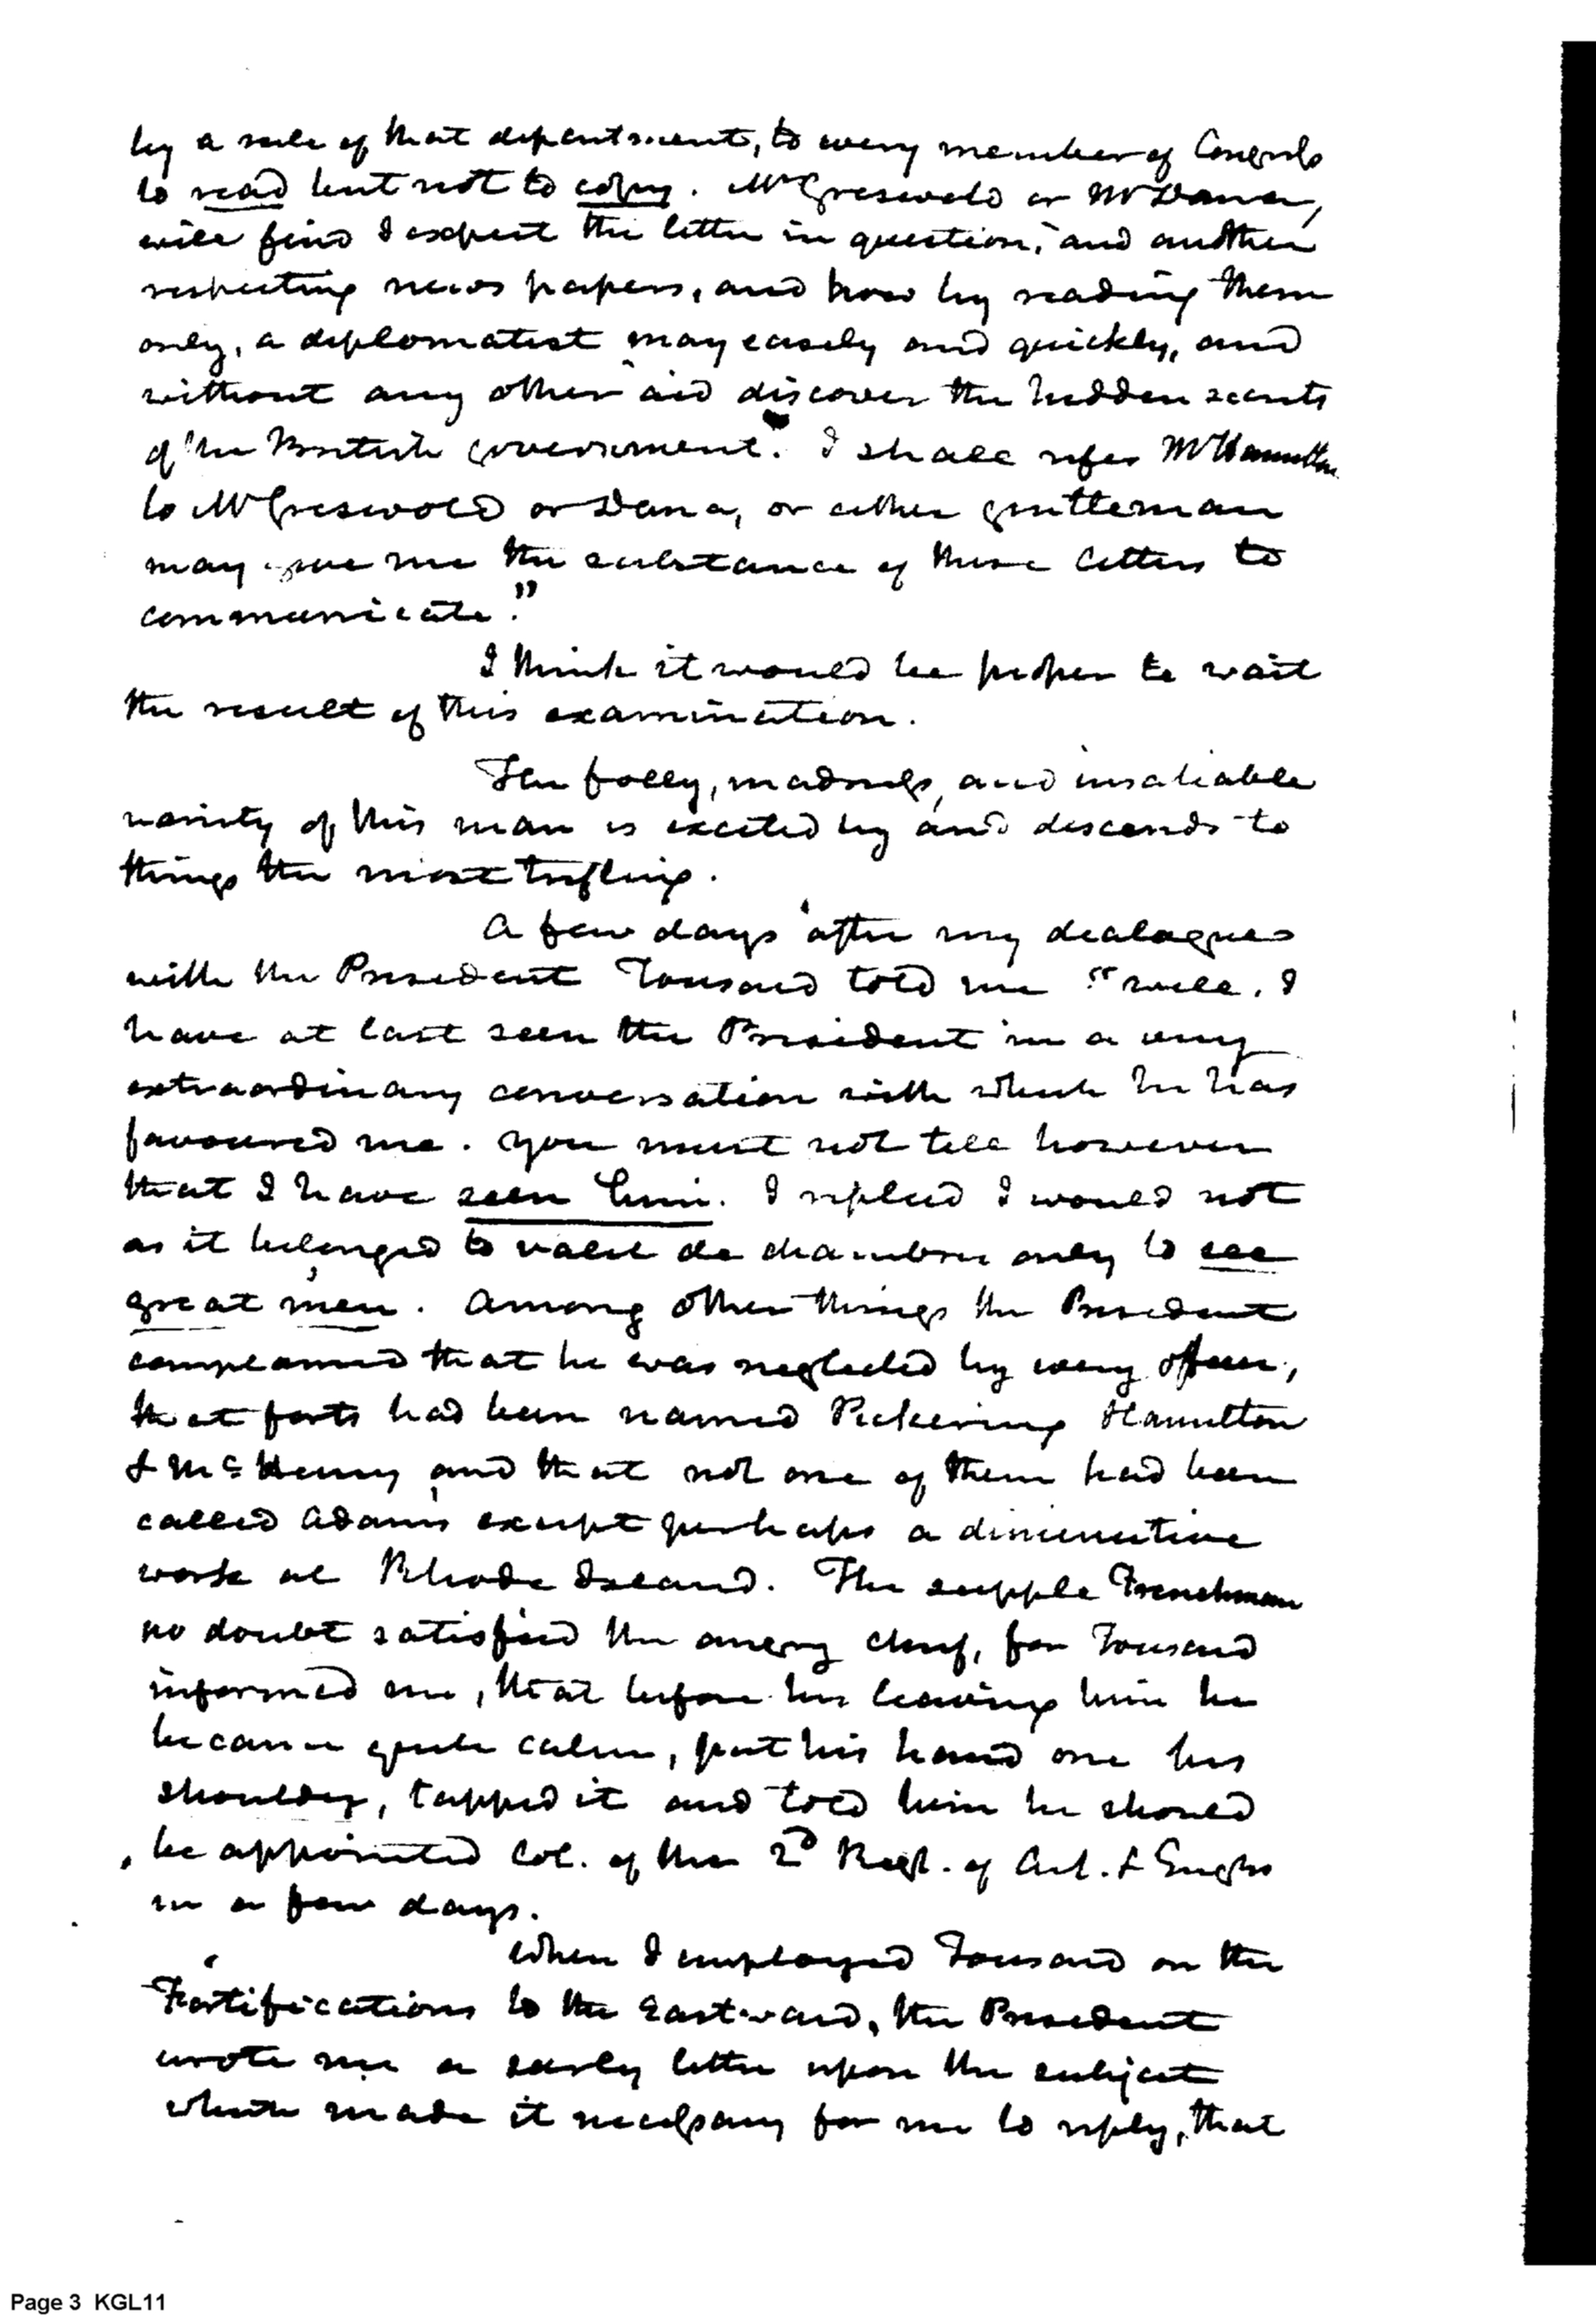 by a rule of that department, to every member of Congress
to read but not to copy. Mr Greswold or Mr Dana,
will find I expect the letter in question, and another
respecting news papers, and how by reading them
only, a diplomatist may easely and quickly, and
without any other aid discover the hidden secrets
of the British government. I shall refer Mr Hamilton
to Mr Greswold or Dana, or either gentleman
may give me the substance of these letters to
communicate."
I think it would be proper to wait
the result of this examination.
The folly, madness, and insatiable
vanity of this man is excited by and descends to
things the most trifling.
A few days after my dialogues
with the President Tousard told me "well, I
have at last seen the President in a very
extraordinary conversation with which he has
favoured me. You must not tell however
that I have seen him. I replied I would not
as it belonged to valet de chambres only to see
great men. Among other things the President
complained that he was neglected by every officer,
that forts had been named Pickering Hamilton
& McHenry and that not one of them had been
called Adams except perhaps a diminutive
work at Rhode Island. The supple Frenchman
no doubt satisfied the angry chief, for Tousard
informed me, that before his leaving him he
became quite calm, put his hand one his
shoulder, tapped it and told him he should
be appointed Col. of the 2d Regt. of Art. & Engrs
in a few days.
When I employed Tousard on the
Fortifications to the Eastward, the President
wrote me a surly letter upon the subject
which made it necessary for me to reply, that
Page 3 KGL11